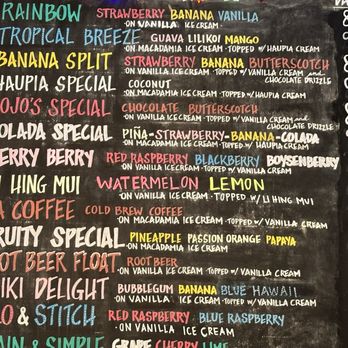 RAINBOW STRAWBERRY BANANA VANILLA
ON VANILLA ICE CREAM
TROPICAL BREEZE GUAVA LILIKOI MANGO
ON MACADAMIA ICE CREAM - TOPPED W/ HAUPIA CREAM
BANANA SPLIT STRAWBERRY BANANA BUTTERSCOTCH
ON VANILLA ICE CREAM - TOPPED W/ VANILLA CREAM and CHOCOLATE DRIZZLE
HAUPIA SPECIAL COCONUT
ON MACADAMIA ICE CREAM - TOPPED W/ HAUPIA CREAM
OJO'S SPECIAL CHOCOLATE BUTTERSCOTCH
ON VANILLA ICE CREAM - TOPPED W/ VANILLA CREAM and CHOCOLATE DRIZZLE
OLADA SPECIAL PIÑA-STRAWBERRY-BANANA-COLADA
ON MACADAMIA ICE CREAM - TOPPED W/ HAUPIA CREAM
ERRY BERRY RED RASPBERRY BLUEBERRY BOYSENBERRY
ON VANILLA ICE CREAM - TOPPED W/ VANILLA CREAM
I HING MUI WATERMELON LEMON
ON VANILLA ICE CREAM - TOPPED W/ LI HING MUI
A COFFEE COLD BREW COFFEE
ON MACADAMIA ICE CREAM - TOPPED W/ VANILLA CREAM
RUITY SPECIAL PINEAPPLE PASSION ORANGE PAPAYA
ON MACADAMIA ICE CREAM - TOPPED W/ HAUPIA CREAM
OOT BEER FLOAT ROOT BEER
ON VANILLA ICE CREAM - TOPPED W/ VANILLA CREAM
IKI DELIGHT BUBBLEGUM BANANA BLUE HAWAII
ON VANILLA ICE CREAM - TOPPED W/ VANILLA CREAM
O & STITCH RED RASPBERRY BLUE RASPBERRY
ON VANILLA ICE CREAM
AIN & SIMPLE GRAPE CHERRY LIME